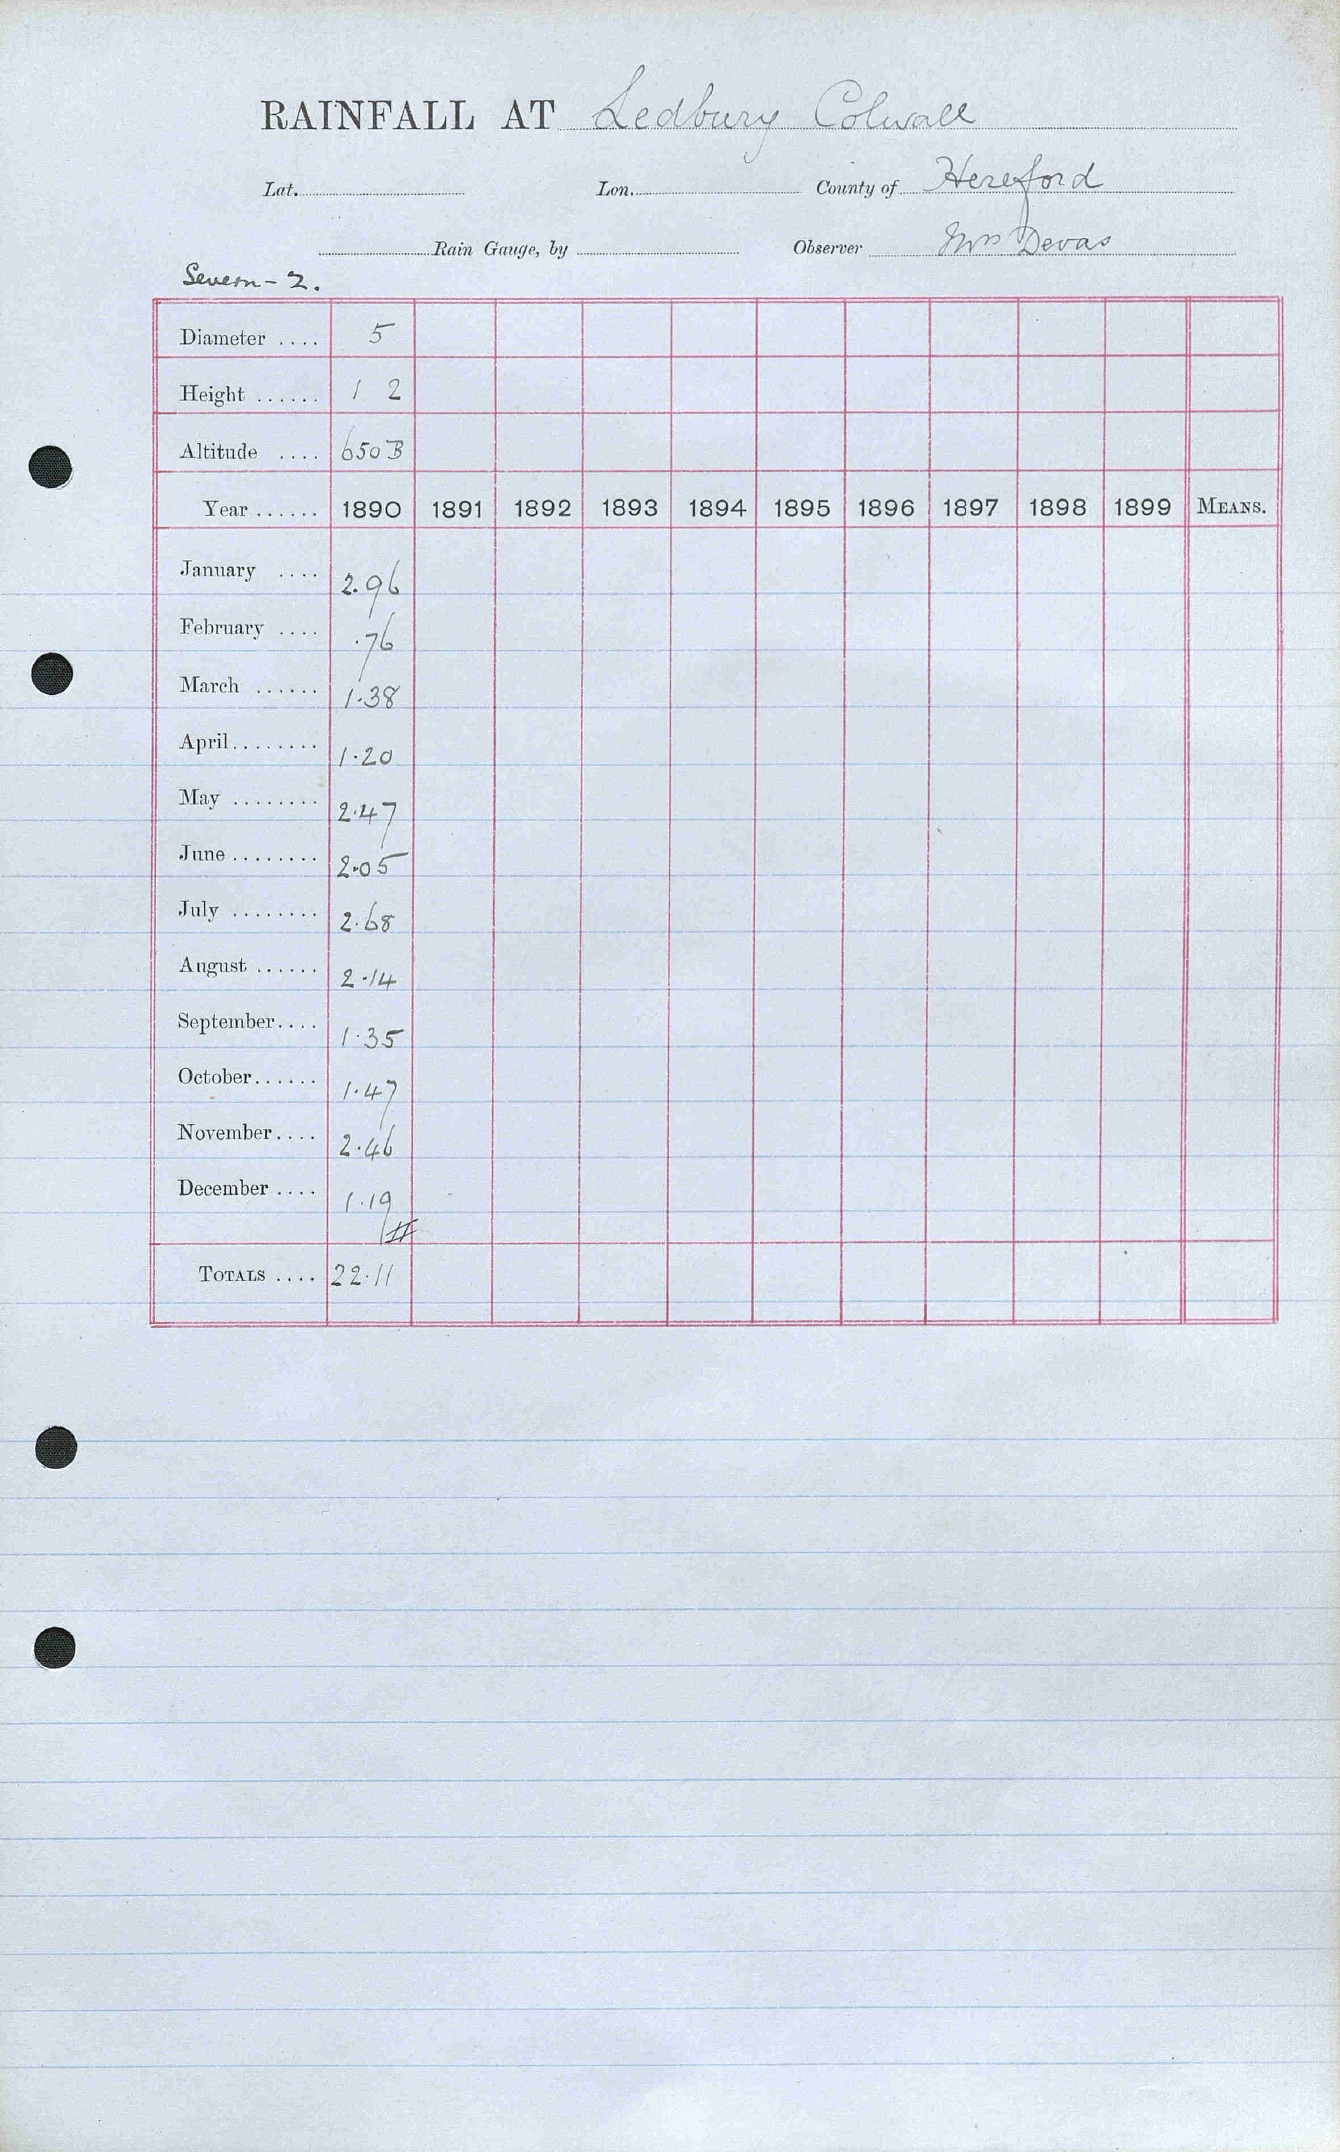 RAINFALL AT Ledbury Colwall
Lat. Lon. County of Hereford
Rain Gauge, by Observer Mrs Devas
Severn - 2.
Diameter .... 5
Height ...... 1 2
Altitude .... 650 B
Year ...... 1890 1891 1892 1893 1894 1895 1896 1897 1898 1899 MEANS.
January .... 2.96
February .... .76
March ...... 1.38
April ........ 1.20
May ........ 2.47
June ........ 2.05
July ........ 2.68
August ...... 2.14
September .... 1.35
October ...... 1.47
November .... 2.46
December .... 1.19
TOTALS .... 22.11